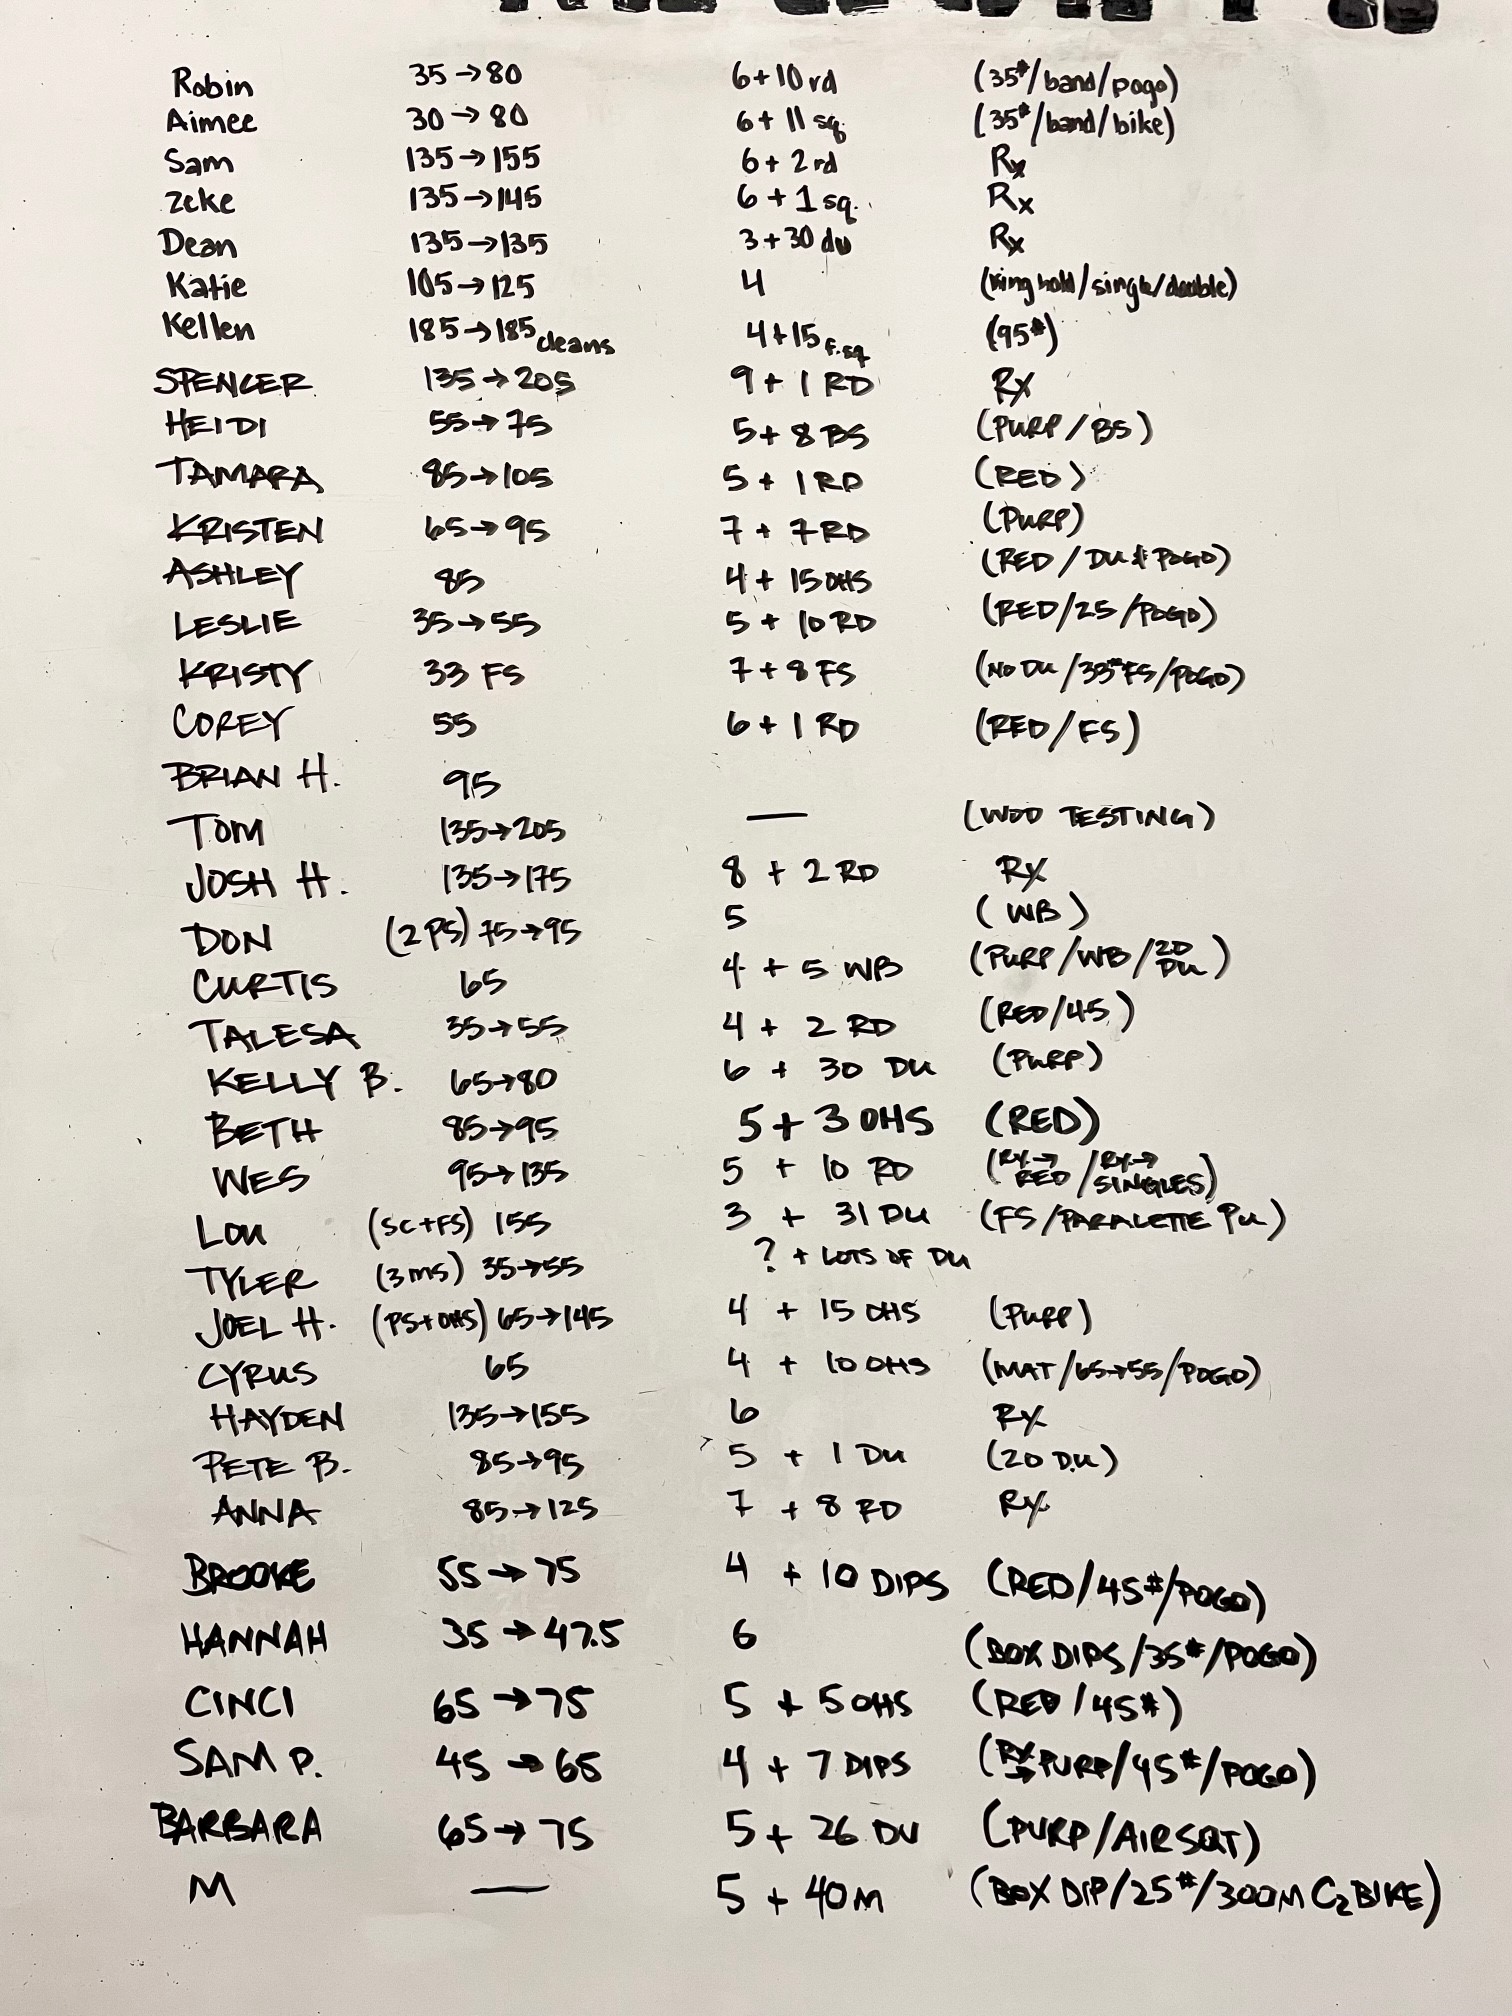 Robin 35→80 6+10 rd (35#/band/pogo)
Aimee 30→80 6+11 sq. (35#/band/bike)
Sam 135→155 6+2 rd Rx
Zeke 135→145 6+1 sq. Rx
Dean 135→135 3+30 du Rx
Katie 105→125 4 (ring hold/single/double)
Kellen 185→185 cleans 4+15 f.sq (95#)
SPENCER 135→205 9+1 RD RX
HEIDI 55→75 5+8 BS (PURP/BS)
TAMARA 85→105 5+1 RD (RED)
KRISTEN 65→95 7+7 RD (PURP)
ASHLEY 85 4+15 OHS (RED/DU & POGO)
LESLIE 35→55 5+10 RD (RED/25/POGO)
KRISTY 33 FS 7+8 FS (NO DU/33# FS/POGO)
COREY 55 6+1 RD (RED/FS)
BRIAN H. 95
TOM 135→205 — (WOD TESTING)
JOSH H. 135→175 8+2 RD RX
DON (2 PS) 75→95 5 (WB)
CURTIS 65 4+5 WB (PURP/WB/20 DU)
TALESA 35→55 4+2 RD (RED/45)
KELLY B. 65→80 6+30 DU (PURP)
BETH 85→95 5+3 OHS (RED)
WES 95→135 5+10 RD (RX→RED/RX→SINGLES)
LOU (SC+FS) 155 3+31 DU (FS/PARALETTE PU)
TYLER (3 MS) 35→55 ?+LOTS OF DU
JOEL H. (PS+OHS) 65→145 4+15 OHS (PURP)
CYRUS 65 4+10 OHS (MAT/65→55/POGO)
HAYDEN 135→155 6 RX
PETE B. 85→95 5+1 DU (20 D.U)
ANNA 85→125 7+8 RD RX
BROOKE 55→75 4+10 DIPS (RED/45#/POGO)
HANNAH 35→47.5 6 (BOX DIPS/35#/POGO)
CINCI 65→75 5+5 OHS (RED/45#)
SAM P. 45→65 4+7 DIPS (RX→PURP/45#/POGO)
BARBARA 65→75 5+26 DU (PURP/AIR SQT)
M — 5+40M (BOX DIP/25#/300M C2 BIKE)